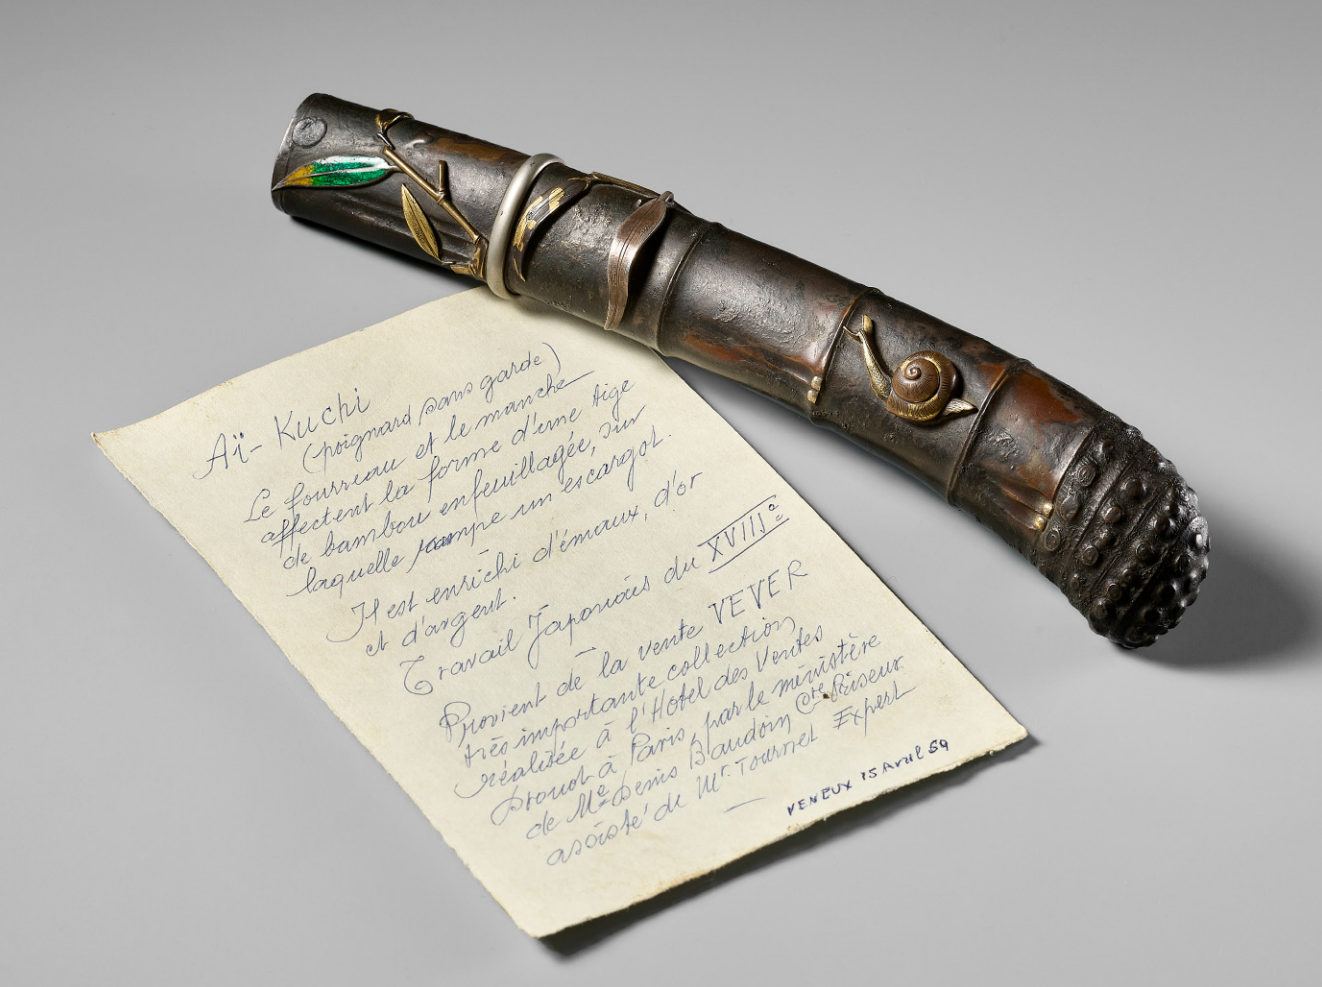 Aï-Kuchi
(poignard sans garde)
Le fourreau et le manche
affectent la forme d'une tige
de bambou enfeuillagée, sur
laquelle rampe un escargot.
Il est enrichi d'émaux, d'or
et d'argent.
Travail Japonais du XVIIIe
Provient de la vente VEVER
très importante collection
réalisée à l'Hotel des Ventes
Drouot à Paris, par le ministère
de Me Denis Baudoin Cre Priseur
assisté de Mr. Tournet Expert
VENEUX 15 Avril 59